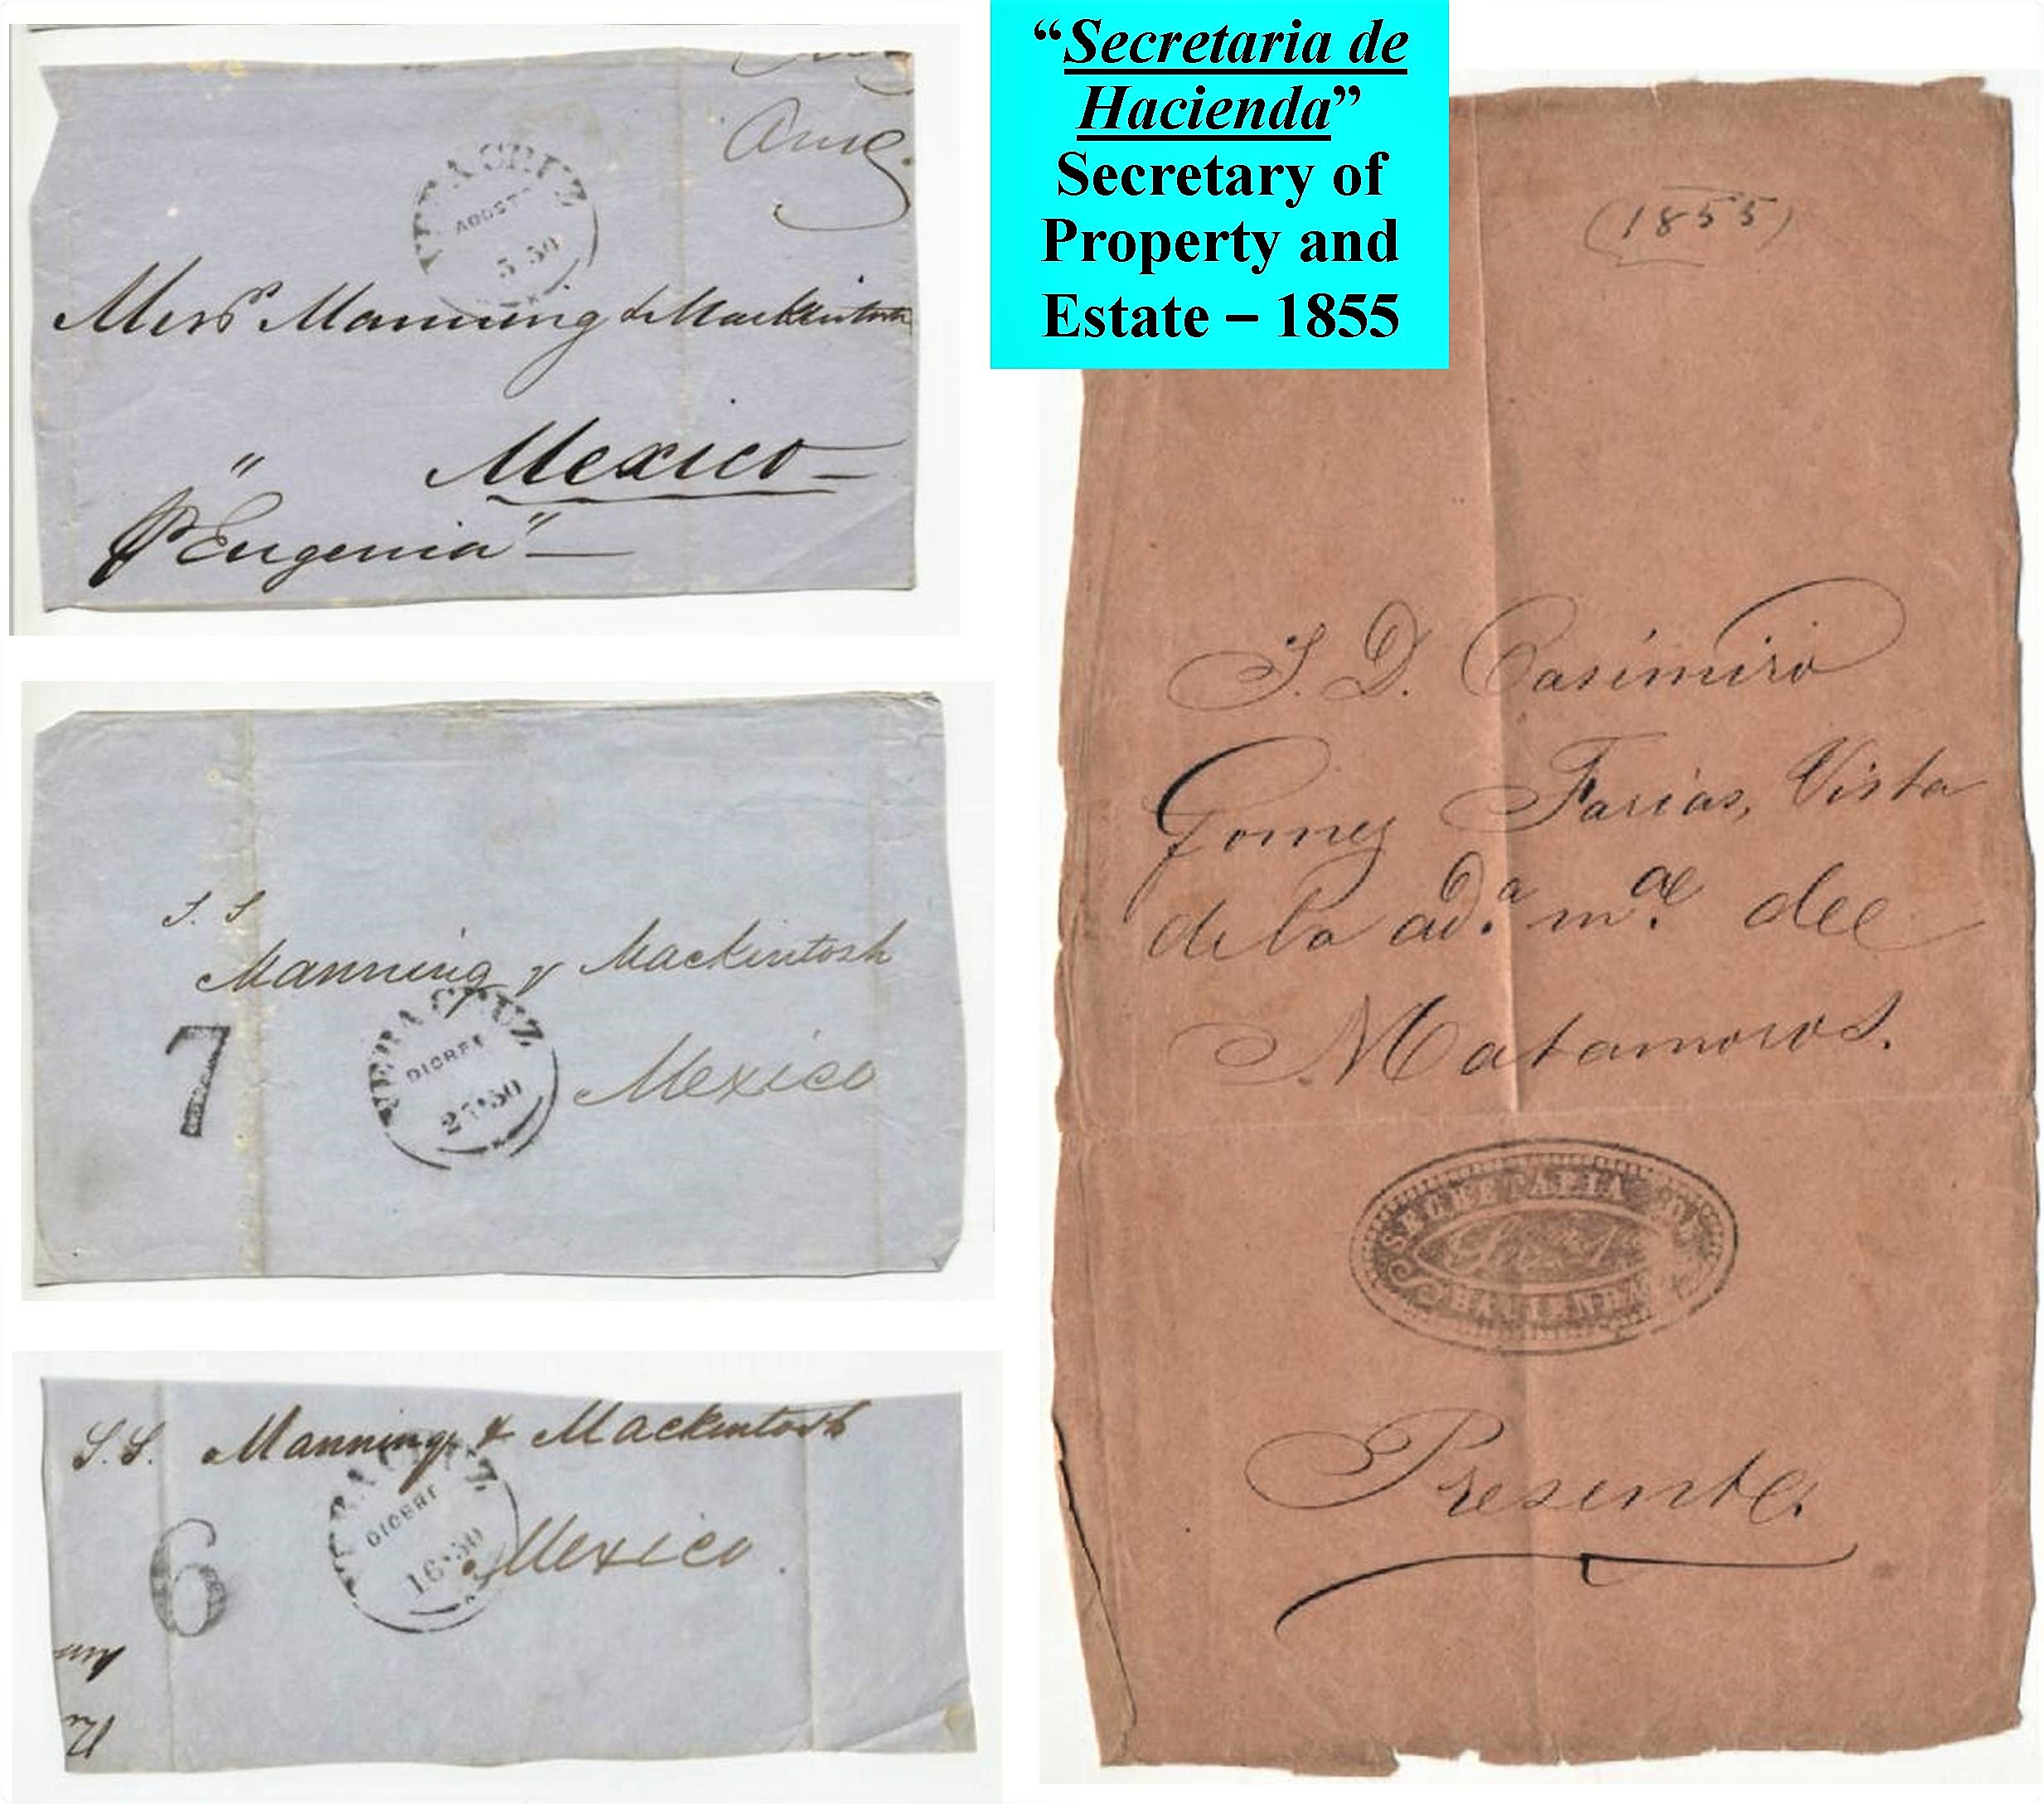 “Secretaria de
Hacienda”
Secretary of
Property and
Estate – 1855
VERA CRUZ
AGOSTO
5 50
Messrs Manning & Mackintosh
Mexico
"
p "Eugenia"
S. S
Manning y Mackintosh
7
VERA CRUZ
DICBRE
27·50
Mexico
S.S. Manning & Mackintosh
6
VERA CRUZ
DICBRE
16·50
Mexico
(1855)
S. D. Casimiro
Gomez Farias, Vista
de la ad.a m.a del
Matamoros.
SECRETARIA DE
HACIENDA
Presente.